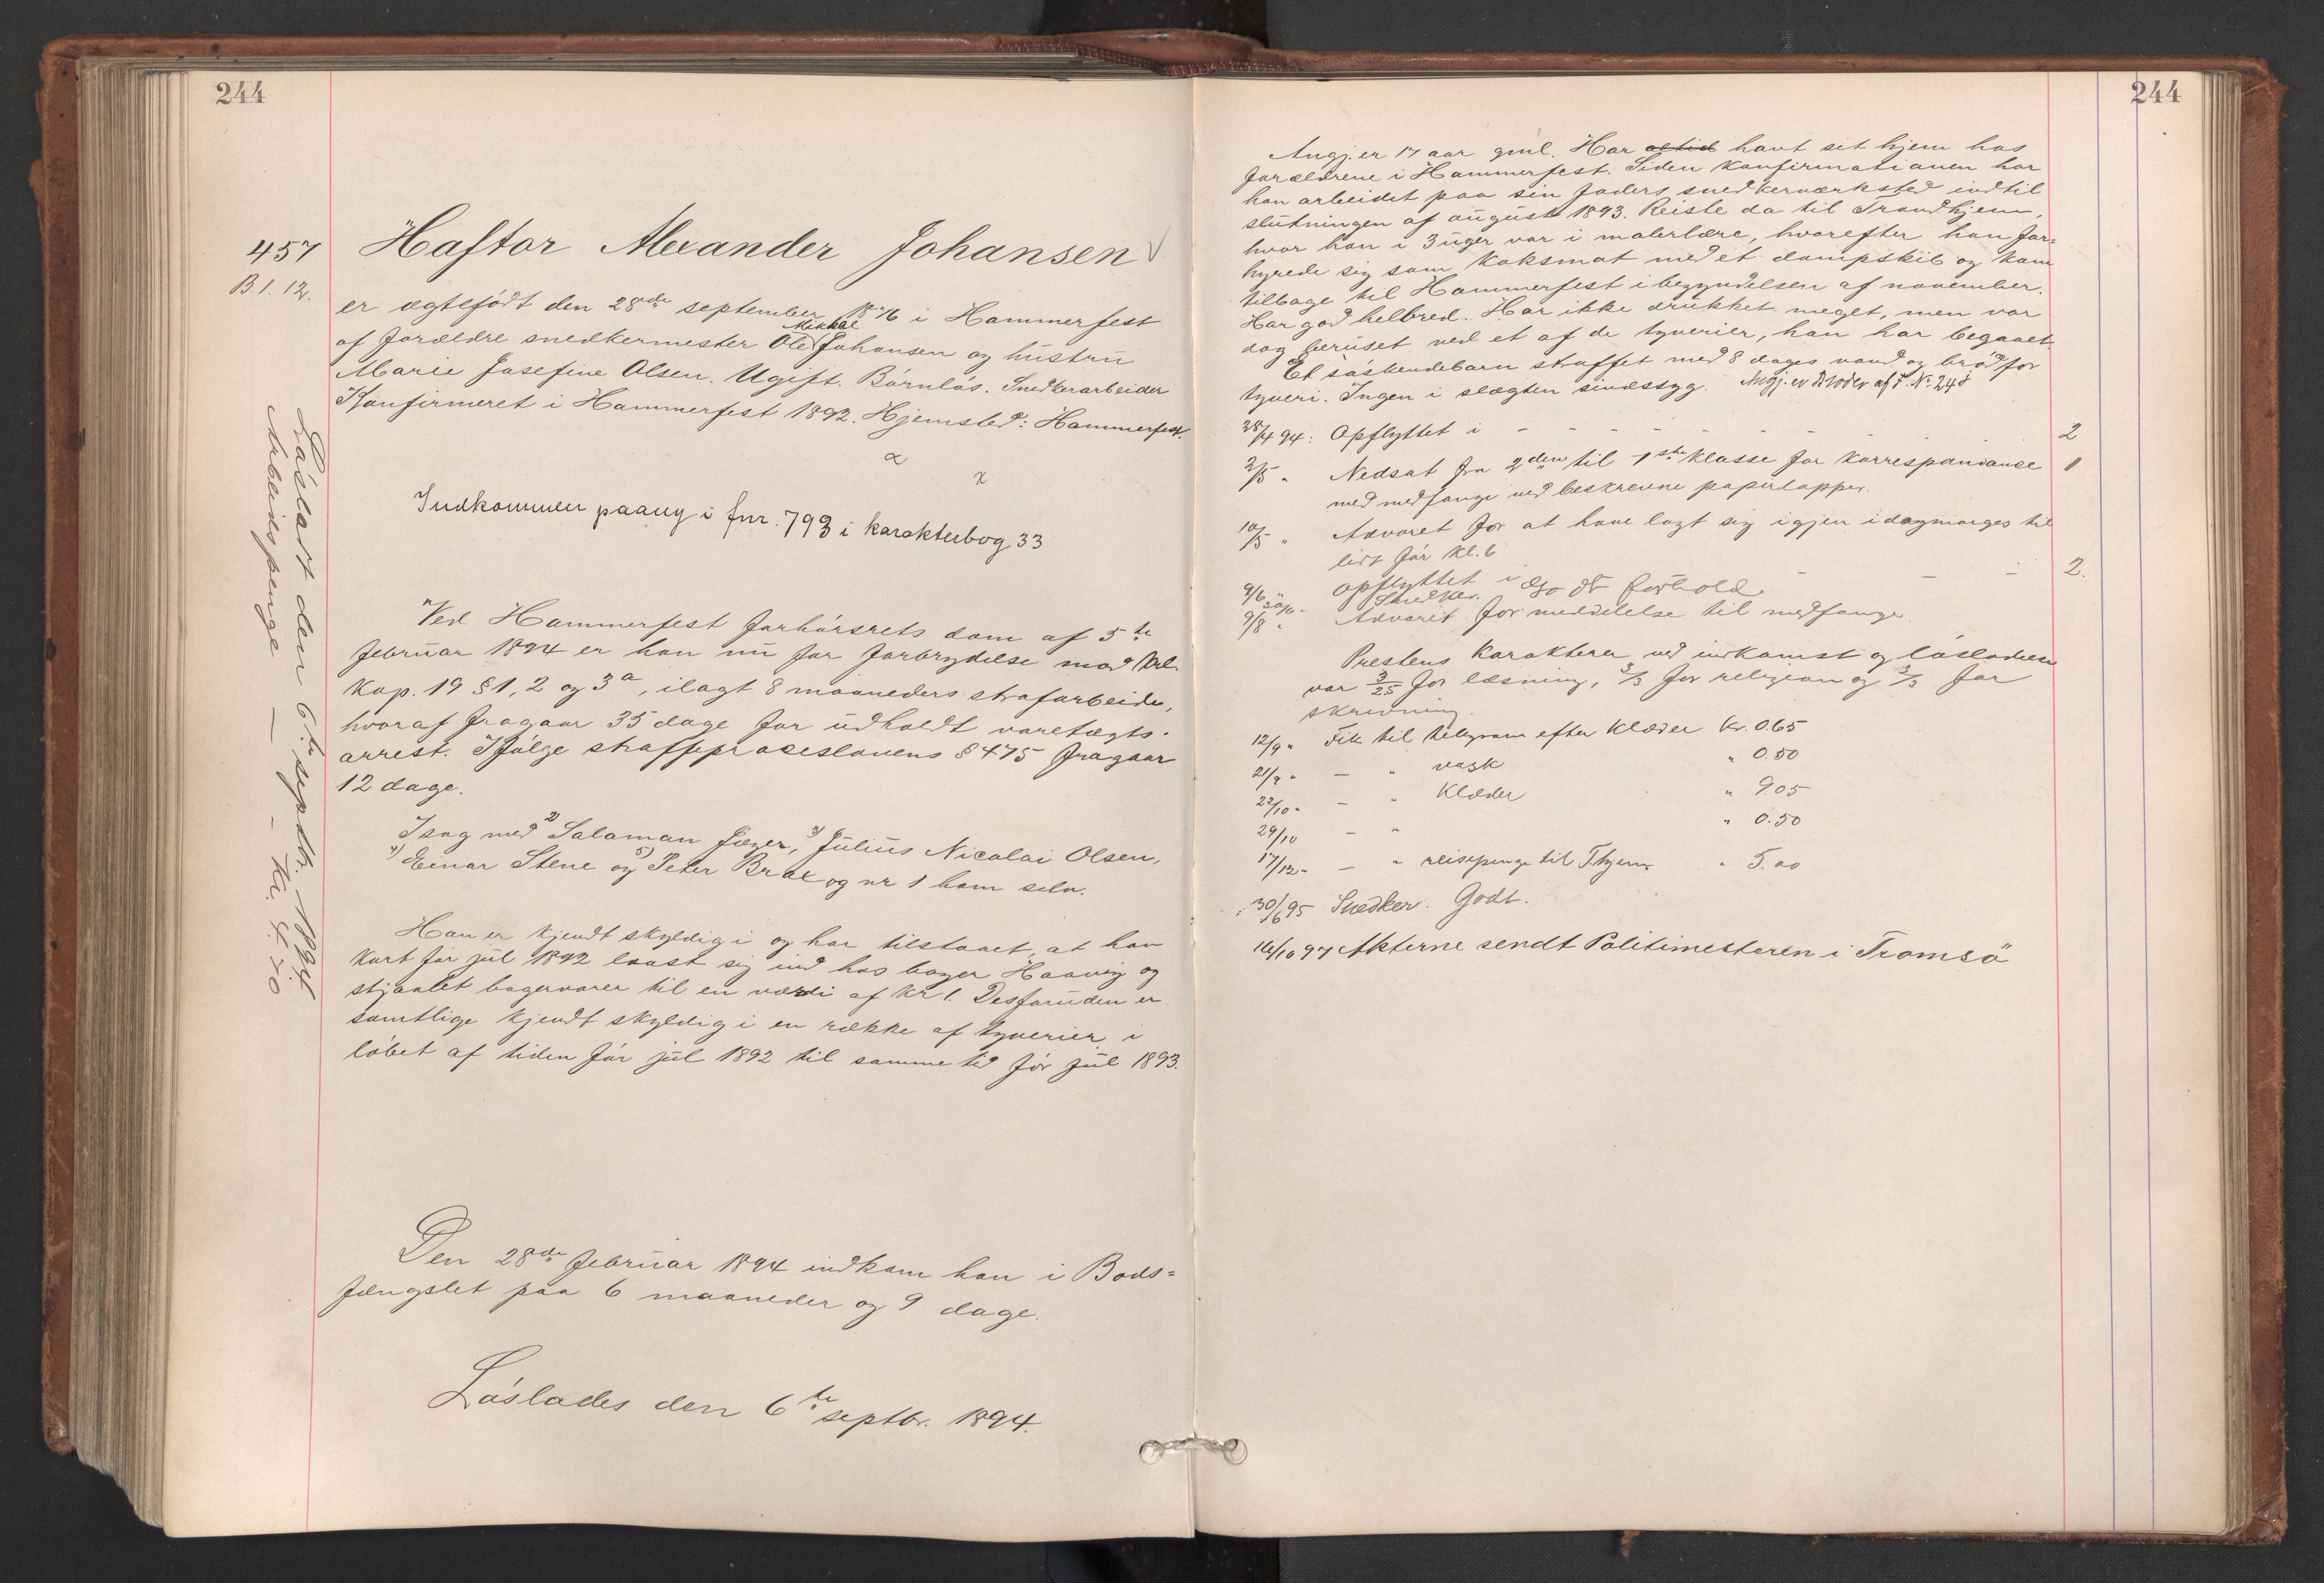 244
457
B 1. 12.
Haftor Alexander Johansen
er ægtefødt den 28de september 1876 i Hammerfest
Mikkal
af forældre snedkermester Ole Johansen og hustru
Marie Josefine Olsen. Ugift. Børnløs. Snedkerarbeider
Konfirmeret i Hammerfest 1892. Hjemsted: Hammerfest.
Indkommen paany i fnr. 793 i karakterbog 33
Løsladt den 6te septbr. 1894
Arbeidspenge — — Kr. 4.70
Ved Hammerfest forhørsrets dom af 5te
februar 1894 er han nu for forbrydelse mod Krl.
Kap. 19 § 1, 2 og 3a, ilagt 8 maaneders strafarbeide,
hvoraf fragaar 35 dage for udholdt varetægts-
arrest. Ifølge straffeproceslovens § 475 fragaar
12 dage.
I sag med 2) Salaman Jæger, 3) Julius Nicolai Olsen,
4) Einar Stene og 5) Peter Bræk og nr 1 ham selv.
Han er kjendt skyldig i og har tilstaaet, at han
kort før jul 1892 laast sig ind hos bager Haavig og
stjaalet bagervarer til en værdi af Kr 1. Desforuden er
samtlige kjendt skyldig i en række af tyverier i
løbet af tiden før jul 1892 til samme tid før jul 1893.
Den 28de februar 1894 indkom han i Bods=
fængslet paa 6 maaneder og 9 dage.
Løslades den 6te septbr. 1894.
244
Angj. er 17 aar gml. Har altid havt sit hjem hos
forældrene i Hammerfest. Siden konfirmationen har
han arbeidet paa sin faders snedkerværksted indtil
slutningen af august 1893. Reiste da til Trondhjem,
hvor han i 3 uger var i malerlære, hvorefter han for=
hyrede sig som koksmat med et dampskib og kom
tilbage til Hammerfest i begyndelsen af november.
Har god helbred. Har ikke drukket meget, men var
dog beruset ved et af de tyverier, han har begaaet.
Et søskendebarn straffet med 8 dages vand og brød for
tyveri. Ingen i slægten sindssyg. Angj. er Broder af F. No. 248
28/4 94: Opflyttet i - - - - - - - 2
2/5 " Nedsat fra 2den til 1ste klasse for korrespondance 1
med medfange ved beskrevne papirlapper.
10/5 " Advaret for at have lagt sig igjen idagmorges til
lidt før kl. 6
9/6 " opflyttet i - - - 2.
30/6 " Snedker. Godt forhold
9/8 " Advaret for meddelelse til medfange.
Prestens karakterer ved indkomst og løsladelse
var 3/2.5 for læsning, 3/3 for religion og 3/3 for
skrivning.
12/9 " Fik til telegram efter klæder Kr. 0.65
21/9 " — " vask " 0.50
22/10 " — " Klæder " 9.05
29/10 — " " 0.50
17/12 " — " reisepenge til Thjem " 5.00
30/6 95 Snedker. Godt.
14/10 97 Akterne sendt Politimesteren i Tromsø